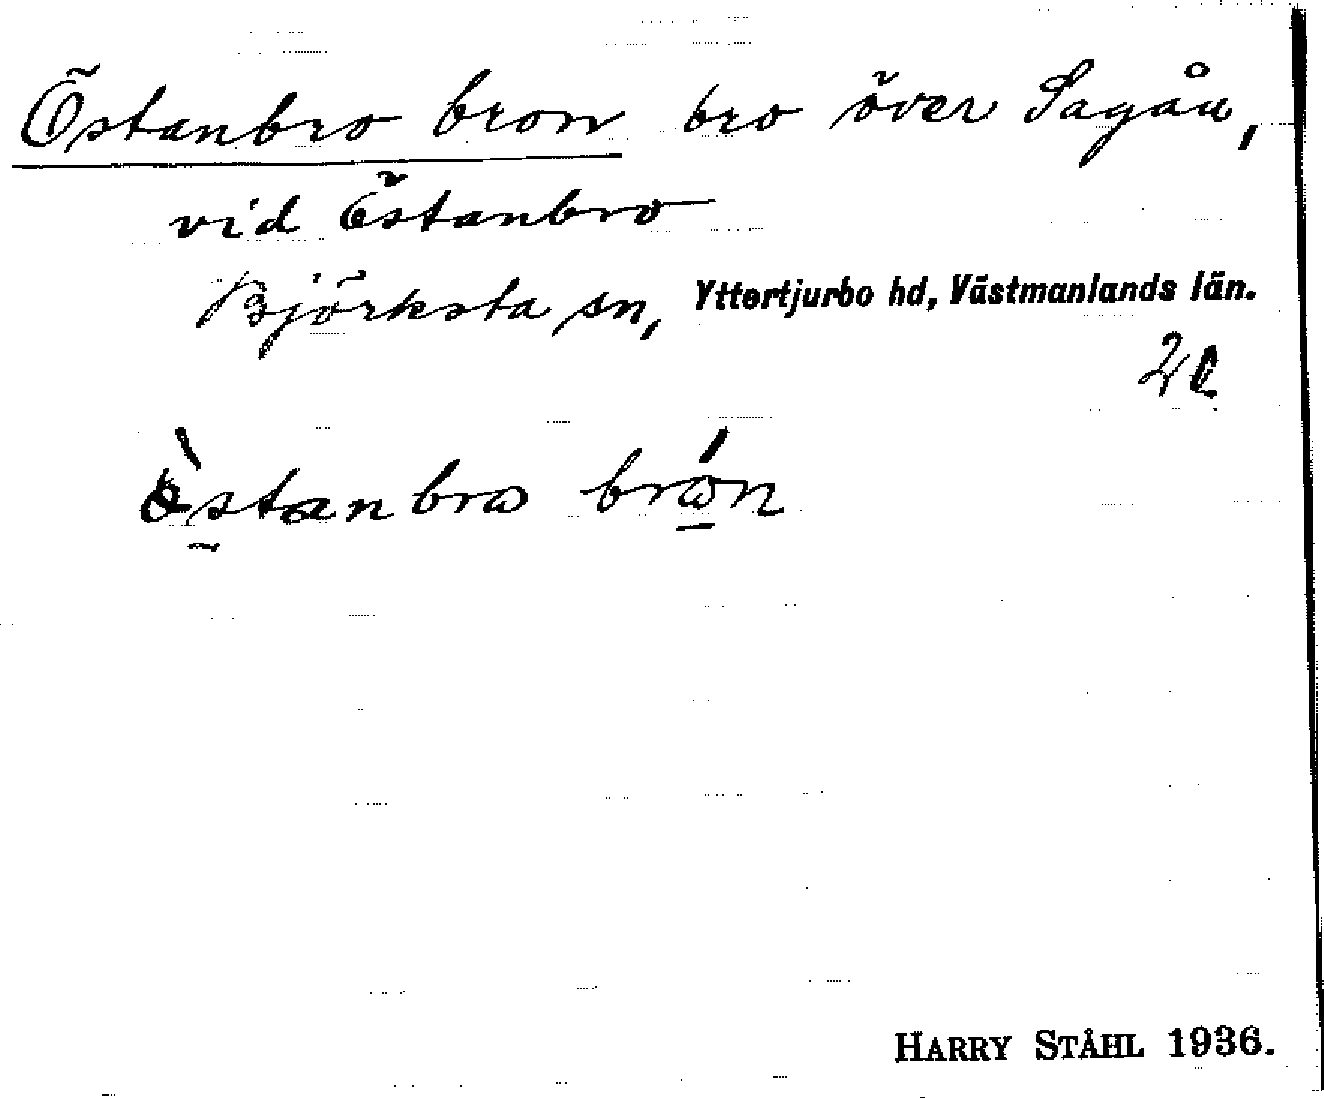 Östanbro bron bro över Sagån,
vid Östanbro
Björksta sn, Yttertjurbo hd, Västmanlands län.
HARRY STÅHL 1936.